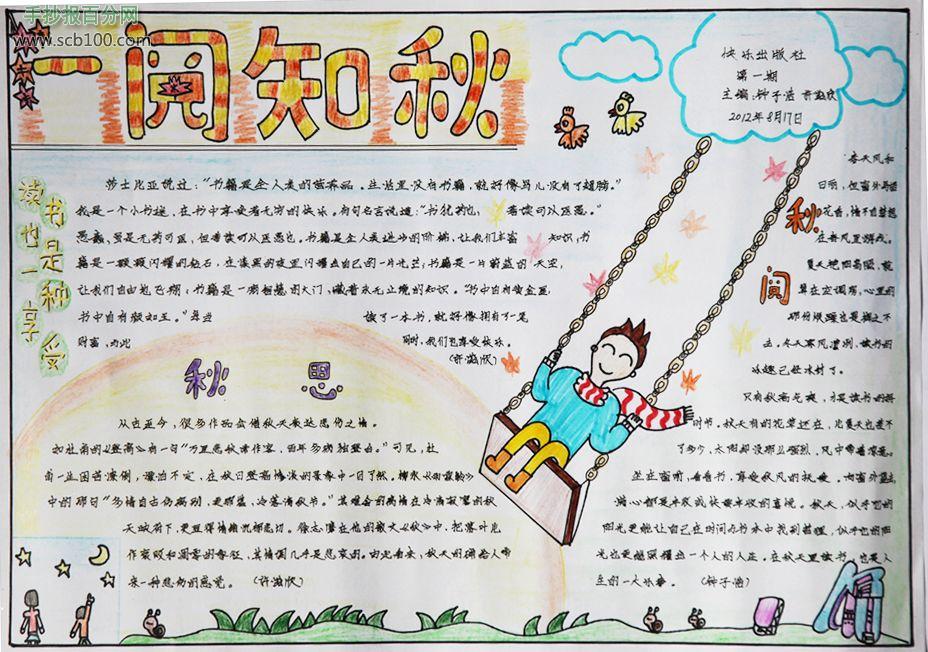 手抄报百分网
www.scb100.com
一阅知秋
快乐出版社
第一期
主编:钟子浩 许滋欣
2012年8月17日
读书也是一种享受
莎士比亚说过:“书籍是全人类的营养品。生活里没有书籍,就好像鸟儿没有了翅膀。”
我是一个小书迷,在书中享受着无穷的快乐。有句名言说道:“书犹药也,善读可以医愚。”
愚蠢,虽是无药可医,但善读可以医愚也。书籍是全人类进步的阶梯,让我们丰富知识;书
籍是一颗颗闪耀的钻石,在漆黑的夜里闪耀点自己的一片光芒;书籍是一片蔚蓝的天空,
让我们自由地飞翔;书籍是一扇智慧的大门,藏着永无止境的知识。“书中自有黄金屋
书中自有颜如玉。”每当
读了一本书,就好像拥有了一笔
财富,为此
同时,我们也享受快乐。
(许滋欣)
秋思
从古至今,很多作品会借秋天来表达悲伤之情。
如杜甫的《登高》有一句“万里悲秋常作客,百年多病独登台。”可见,杜
甫一生困苦潦倒,漂泊不定,在秋日登高惨淡的景象中一目了然。柳永《雨霖铃》
中的那句“多情自古伤离别,更那堪,冷落清秋节。”其难舍的离情在冷清寂寥的秋
天烘托下,更显得情绪沉郁悲凉。徐志摩在他的散文《秋》中,把落叶比
作哀婉和凋零的象征,其情调几乎是悲哀的。由此看来,秋天的确给人带
来一种悲伤的感觉。 (许滋欣)
秋阅
春天风和
日丽,但窗外鸟语
花香,情不自禁想
在春风里游戏。
夏天艳阳高照,就
算在空调房,心里的
那份烦躁也是挥之不
去。冬天寒风凛冽,读书的
乐趣已经冰封了。
只有秋高气爽,才是读书的好
时节。秋天有的花草还在,比夏天也差不
了多少,太阳却没那么强烈,风中带着凉意。
坐在窗前,看着书,享受秋风的抚爱。而窗外望去
满心都是丰收或快要丰收的喜悦。秋天,似乎它的
阳光更能让自己在时间与书本中找到哲理,似乎它的阳
光也更能照耀出一个人的人生。在秋天里读书,也是人
生的一大乐事。 (钟子浩)